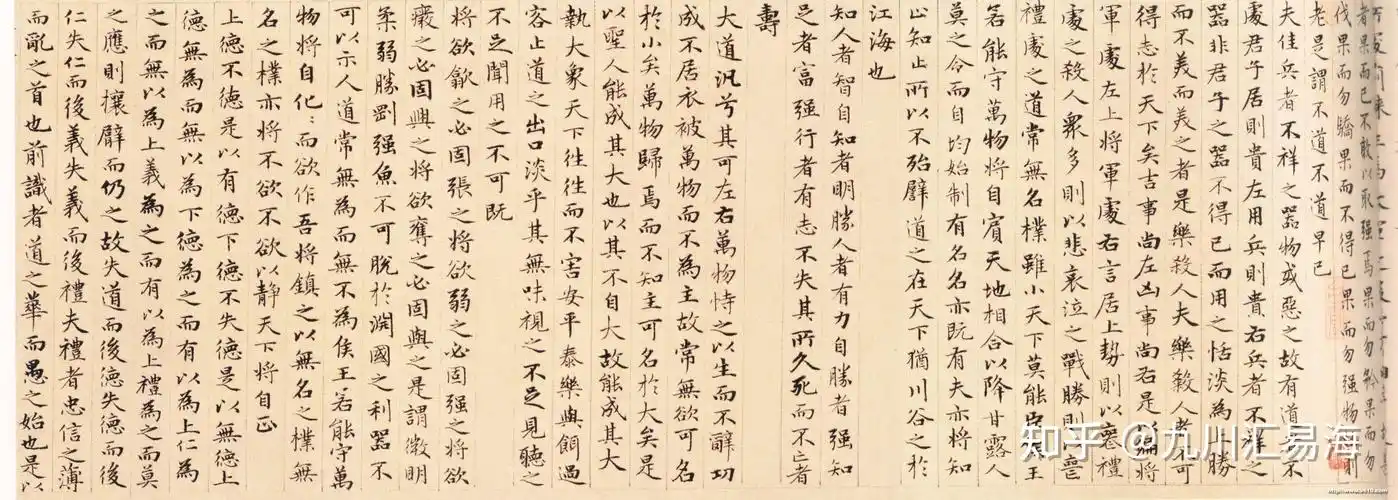 者果而已不敢以取强焉果而勿矜果而勿
伐果而勿驕果而不得已果而勿强物則
老是謂不道不道早已
夫佳兵者不祥之器物或惡之故有道不
處君子居則貴左用兵則貴右兵者不祥之
器非君子之器不得已而用之恬淡為上勝
而不美而美之者是樂殺人夫樂殺人者不可
得志於天下矣吉事尚左凶事尚右是以偏將
軍處左上將軍處右言居上勢則以喪禮
處之殺人衆多則以悲哀泣之戰勝則喪
禮處之道常無名樸雖小天下莫能臣王
若能守萬物將自賓天地相合以降甘露人
莫之令而自均始制有名名亦既有夫亦將知
止知止所以不殆譬道之在天下猶川谷之於
江海也
知人者智自知者明勝人者有力自勝者强知
足者富强行者有志不失其所久死而不亡者
壽
大道汎兮其可左右萬物恃之以生而不辭功
成不居衣被萬物而不為主故常無欲可名
於小矣萬物歸焉而不知主可名於大矣是
以聖人能成其大也以其不自大故能成其大
執大象天下往往而不害安平泰樂與餌過
客止道之出口淡乎其無味視之不足見聽之
不足聞用之不可既
將欲歙之必固張之將欲弱之必固强之將欲
廢之必固興之將欲奪之必固與之是謂微明
柔弱勝剛强魚不可脫於淵國之利器不
可以示人道常無為而無不為侯王若能守萬
物將自化:而欲作吾將鎮之以無名之樸無
名之樸亦將不欲不欲以靜天下將自正
上德不德是以有德下德不失德是以無德上
德無為而無以為下德為之而有以為上仁為
之而無以為上義為之而有以為上禮為之而莫
之應則攘臂而仍之故失道而後德失德而後
仁失仁而後義失義而後禮夫禮者忠信之薄
而亂之首也前識者道之華而愚之始也是以
知乎 @九川汇易海